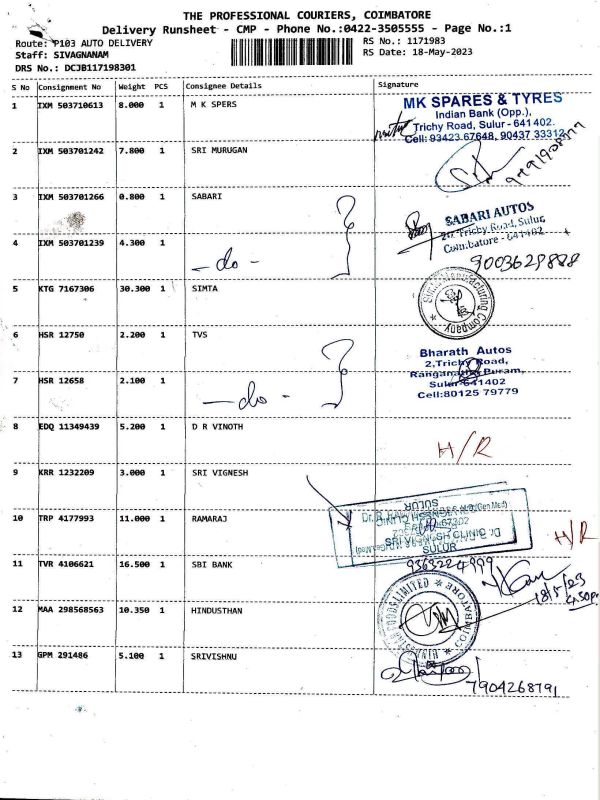 THE PROFESSIONAL COURIERS, COIMBATORE
Delivery Runsheet - CMP - Phone No.:0422-3505555 - Page No.:1
Route: P103 AUTO DELIVERY
Staff: SIVAGNANAM
DRS No.: DCJB117198301
RS No.: 1171983
RS Date: 18-May-2023
S No Consignment No Weight PCS Consignee Details Signature
1 IXM 503710613 8.000 1 M K SPERS
MK SPARES & TYRES
Indian Bank (Opp.),
Trichy Road, Sulur - 641 402.
Cell: 93423 67648, 90437 33312
2 IXM 503701242 7.800 1 SRI MURUGAN
3 IXM 503701266 0.800 1 SABARI
SABARI AUTOS
Trichy Road, Sulur,
Coimbatore - 641402
4 IXM 503701239 4.300 1
- do -
9003629888
5 KTG 7167306 30.300 1 SIMTA
Simta Manufacturing Company
6 HSR 12750 2.200 1 TVS
Bharath Autos
2,Trichy Road,
Ranganathar Puram,
Sulur 641402
Cell:80125 79779
7 HSR 12658 2.100 1
- do -
8 EDQ 11349439 5.200 1 D R VINOTH
H/R
9 KRR 1232209 3.000 1 SRI VIGNESH
10 TRP 4177993 11.000 1 RAMARAJ
SULUR
H/R
11 TVR 4106621 16.500 1 SBI BANK
9363224999
18/5/23
12 MAA 298568563 10.350 1 HINDUSTHAN
LIMITED * COIMBATORE *
13 GPM 291486 5.100 1 SRIVISHNU
7904268791